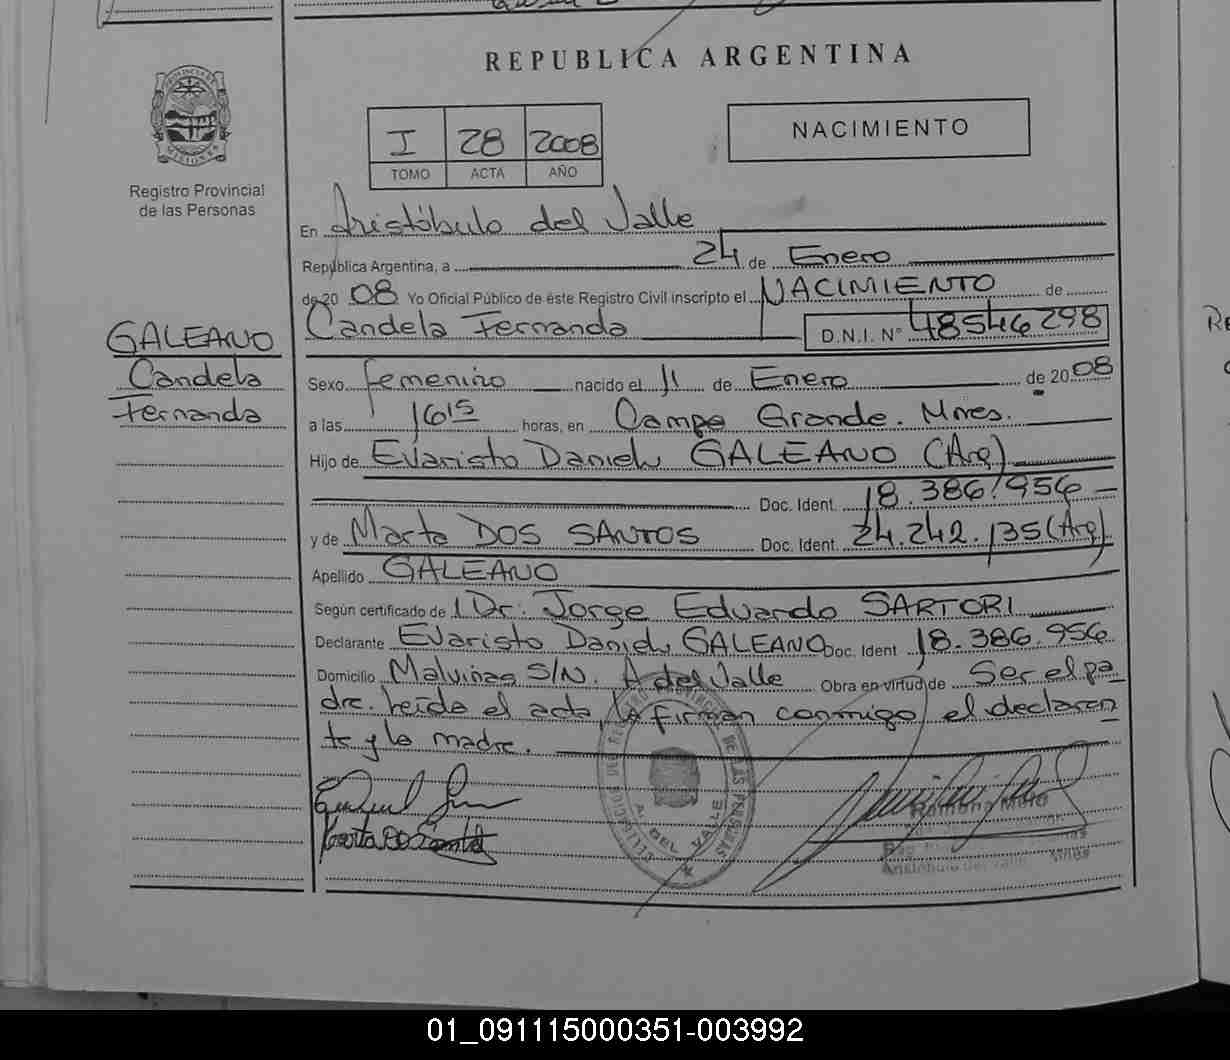 REPUBLICA ARGENTINA
PROVINCIA DE MISIONES
Registro Provincial
de las Personas
I 28 2008
TOMO ACTA AÑO
NACIMIENTO
GALEANO
Candela
Fernanda
En Aristóbulo del Valle
República Argentina, a 24 de Enero
de 20 08 Yo Oficial Público de éste Registro Civil inscripto el NACIMIENTO de
Candela Fernanda D.N.I. N° 48546298
Sexo femenino nacido el 11 de Enero de 20 08
a las 16 15 horas, en Campo Grande. Mnes.
Hijo de Evaristo Daniel GALEANO (Arg)
Doc. Ident. 18.386.956
y de Marta DOS SANTOS Doc. Ident. 24.242.135 (Arg)
Apellido GALEANO
Según certificado de Dr. Jorge Eduardo SARTORI
Declarante Evaristo Daniel GALEANO Doc. Ident 18.386.956
Domicilio Malvinas S/N. A del Valle Obra en virtud de Ser el pa
dre. Leída el acta, la firman conmigo el declaran
te y la madre.
A. DEL VALLE
Ramona Melo
Aristóbulo del Valle Mnes
01_091115000351-003992